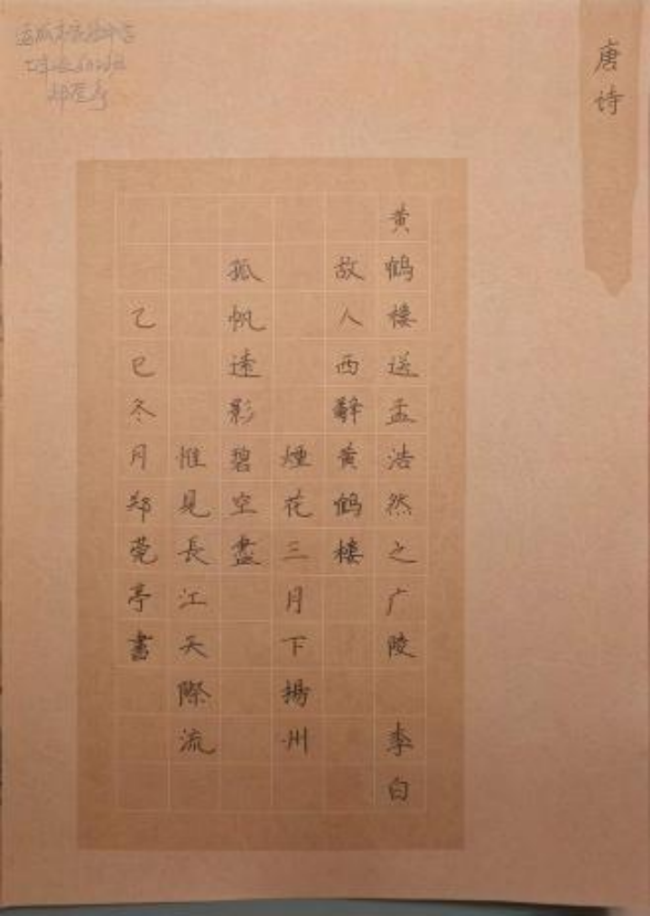 唐诗
黄鹤楼送孟浩然之广陵 李白
故人西辭黄鹤楼
煙花三月下揚州
孤帆遠影碧空盡
惟見長江天際流
乙巳冬月郑莞亭書